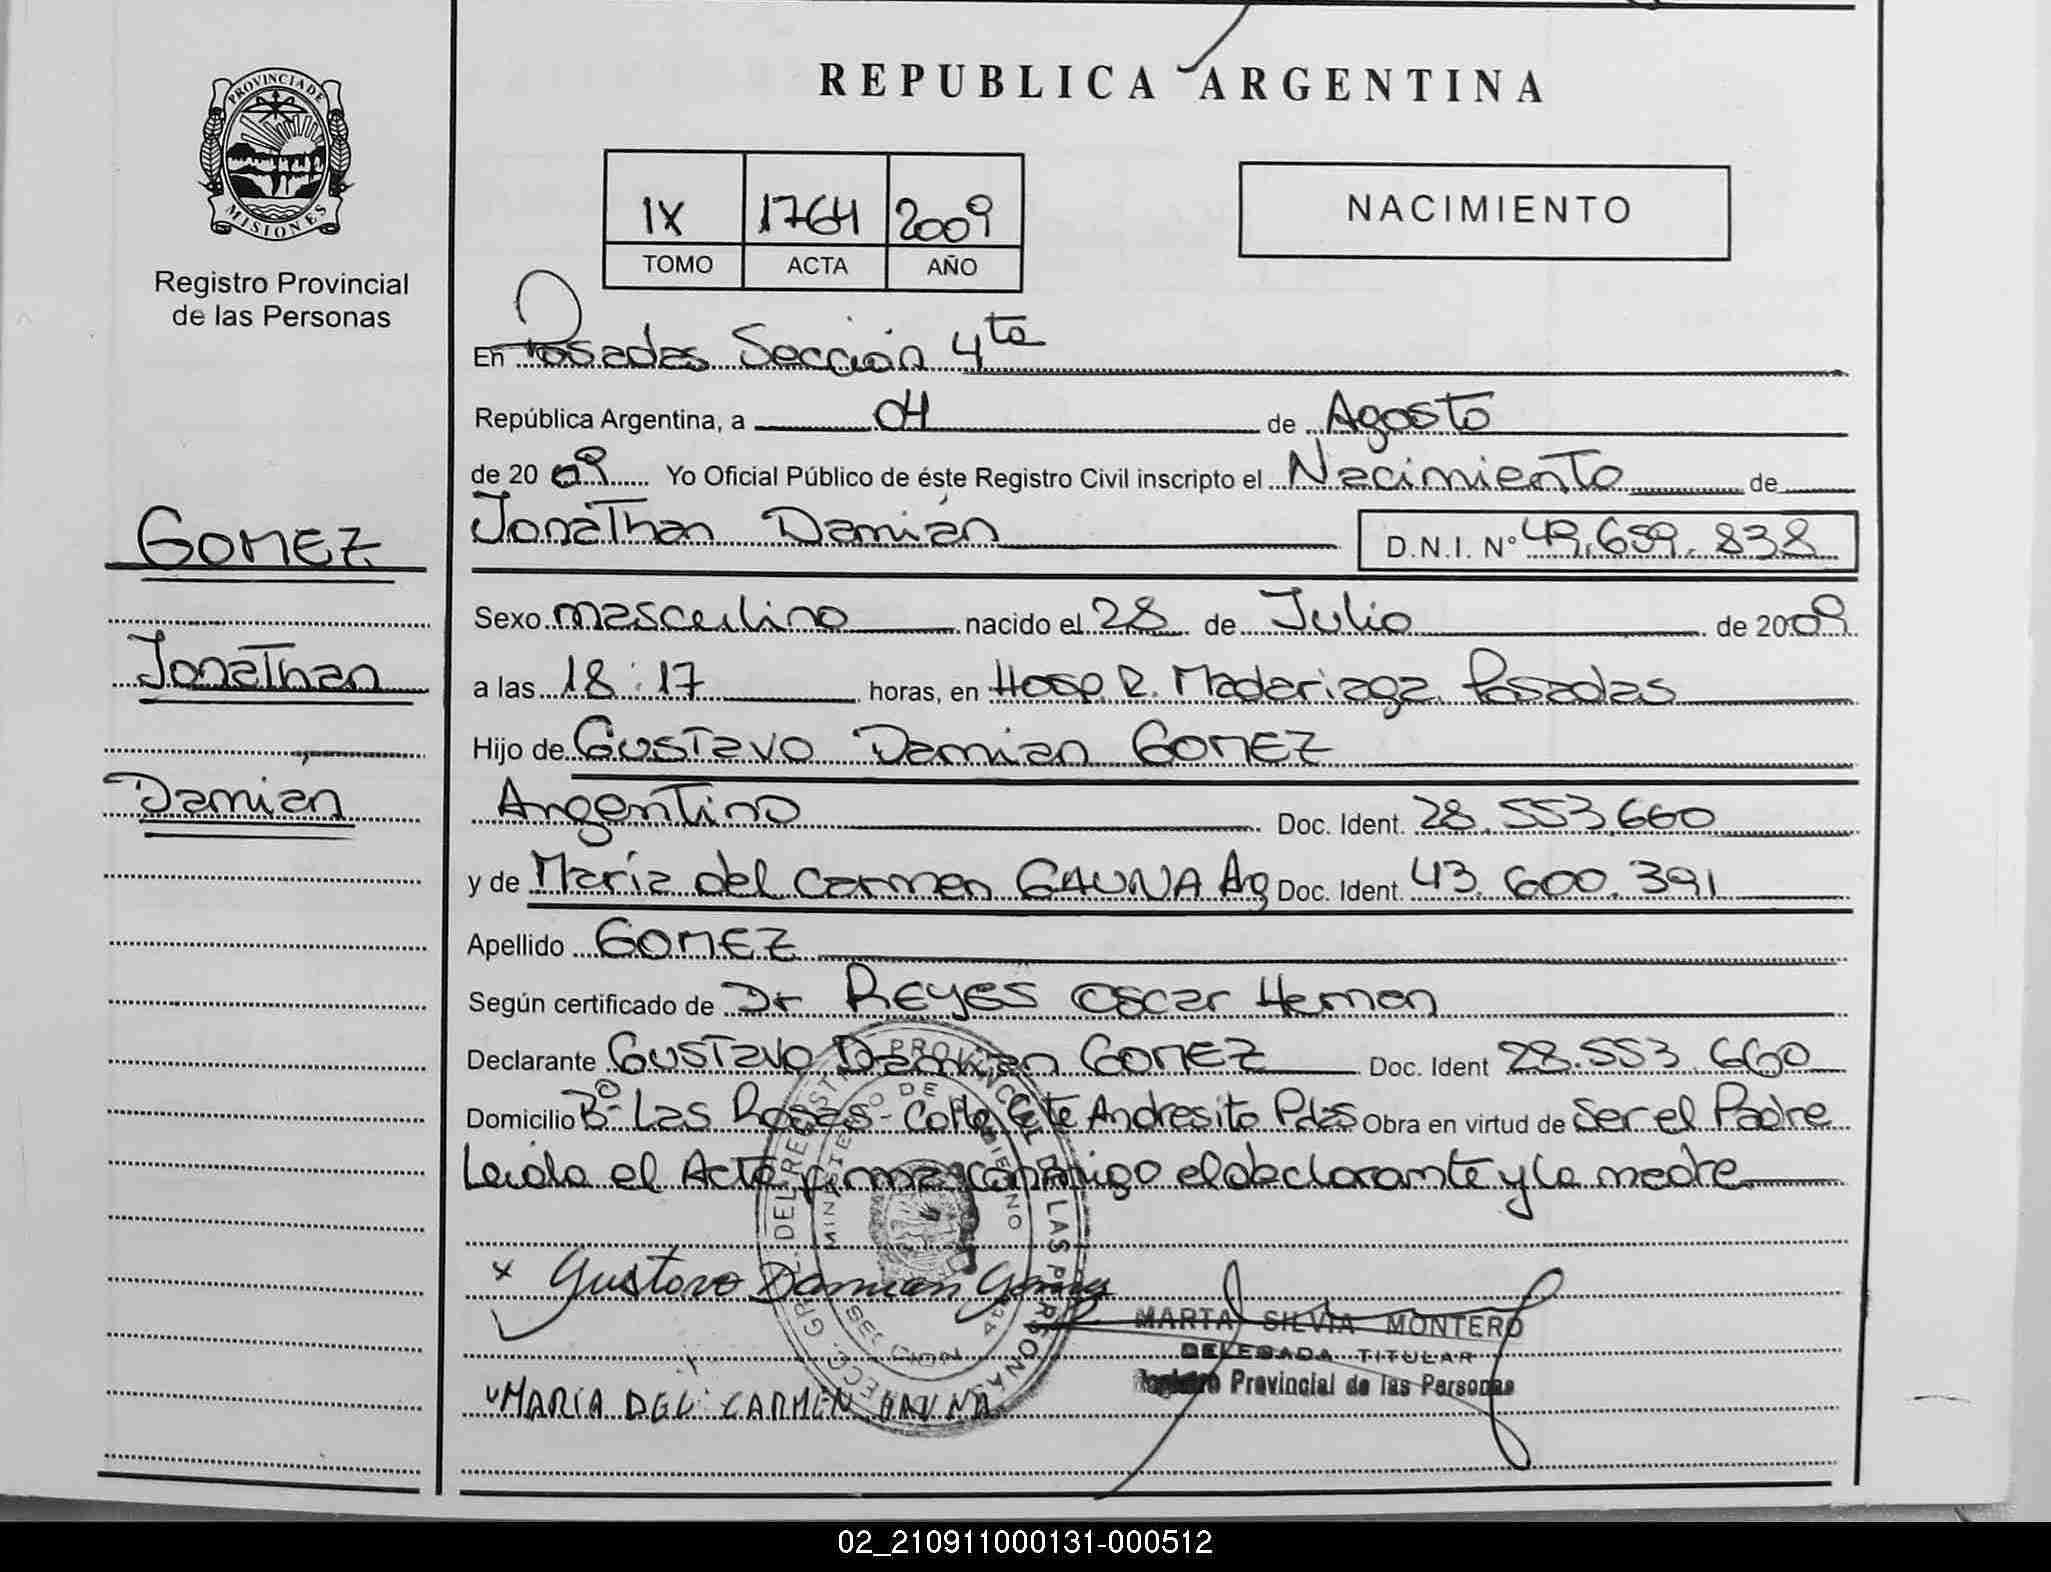 REPUBLICA ARGENTINA
PROVINCIA DE
MISIONES
Registro Provincial
de las Personas
IX 1764 2009
TOMO ACTA AÑO
NACIMIENTO
En Posadas Sección 4ta
República Argentina, a 04 de Agosto
de 2009 Yo Oficial Público de éste Registro Civil inscripto el Nacimiento de
Jonathan Damián D.N.I. N° 49.659.838
GOMEZ
Jonathan
Damian
Sexo masculino nacido el 28 de Julio de 2009
a las 18:17 horas, en Hosp R. Madariaga Posadas
Hijo de Gustavo Damian GOMEZ
Argentino Doc. Ident. 28.553.660
y de María del Carmen GAUNA Ag Doc. Ident. 43.600.391
Apellido GOMEZ
Según certificado de Dr REYES Oscar Hernan
Declarante Gustavo Damian GOMEZ Doc. Ident 28.553.660
Domicilio B° Las Rosas - Calle Cte Andresito Pdas Obra en virtud de Ser el Padre
Leida el Acta firma conmigo el declarante y la madre
x Gustavo Damian Gomez
MARTA SILVIA MONTERO
DELEGADA TITULAR
Registro Provincial de las Personas
MARIA DEL CARMEN GAUNA
02_210911000131-000512